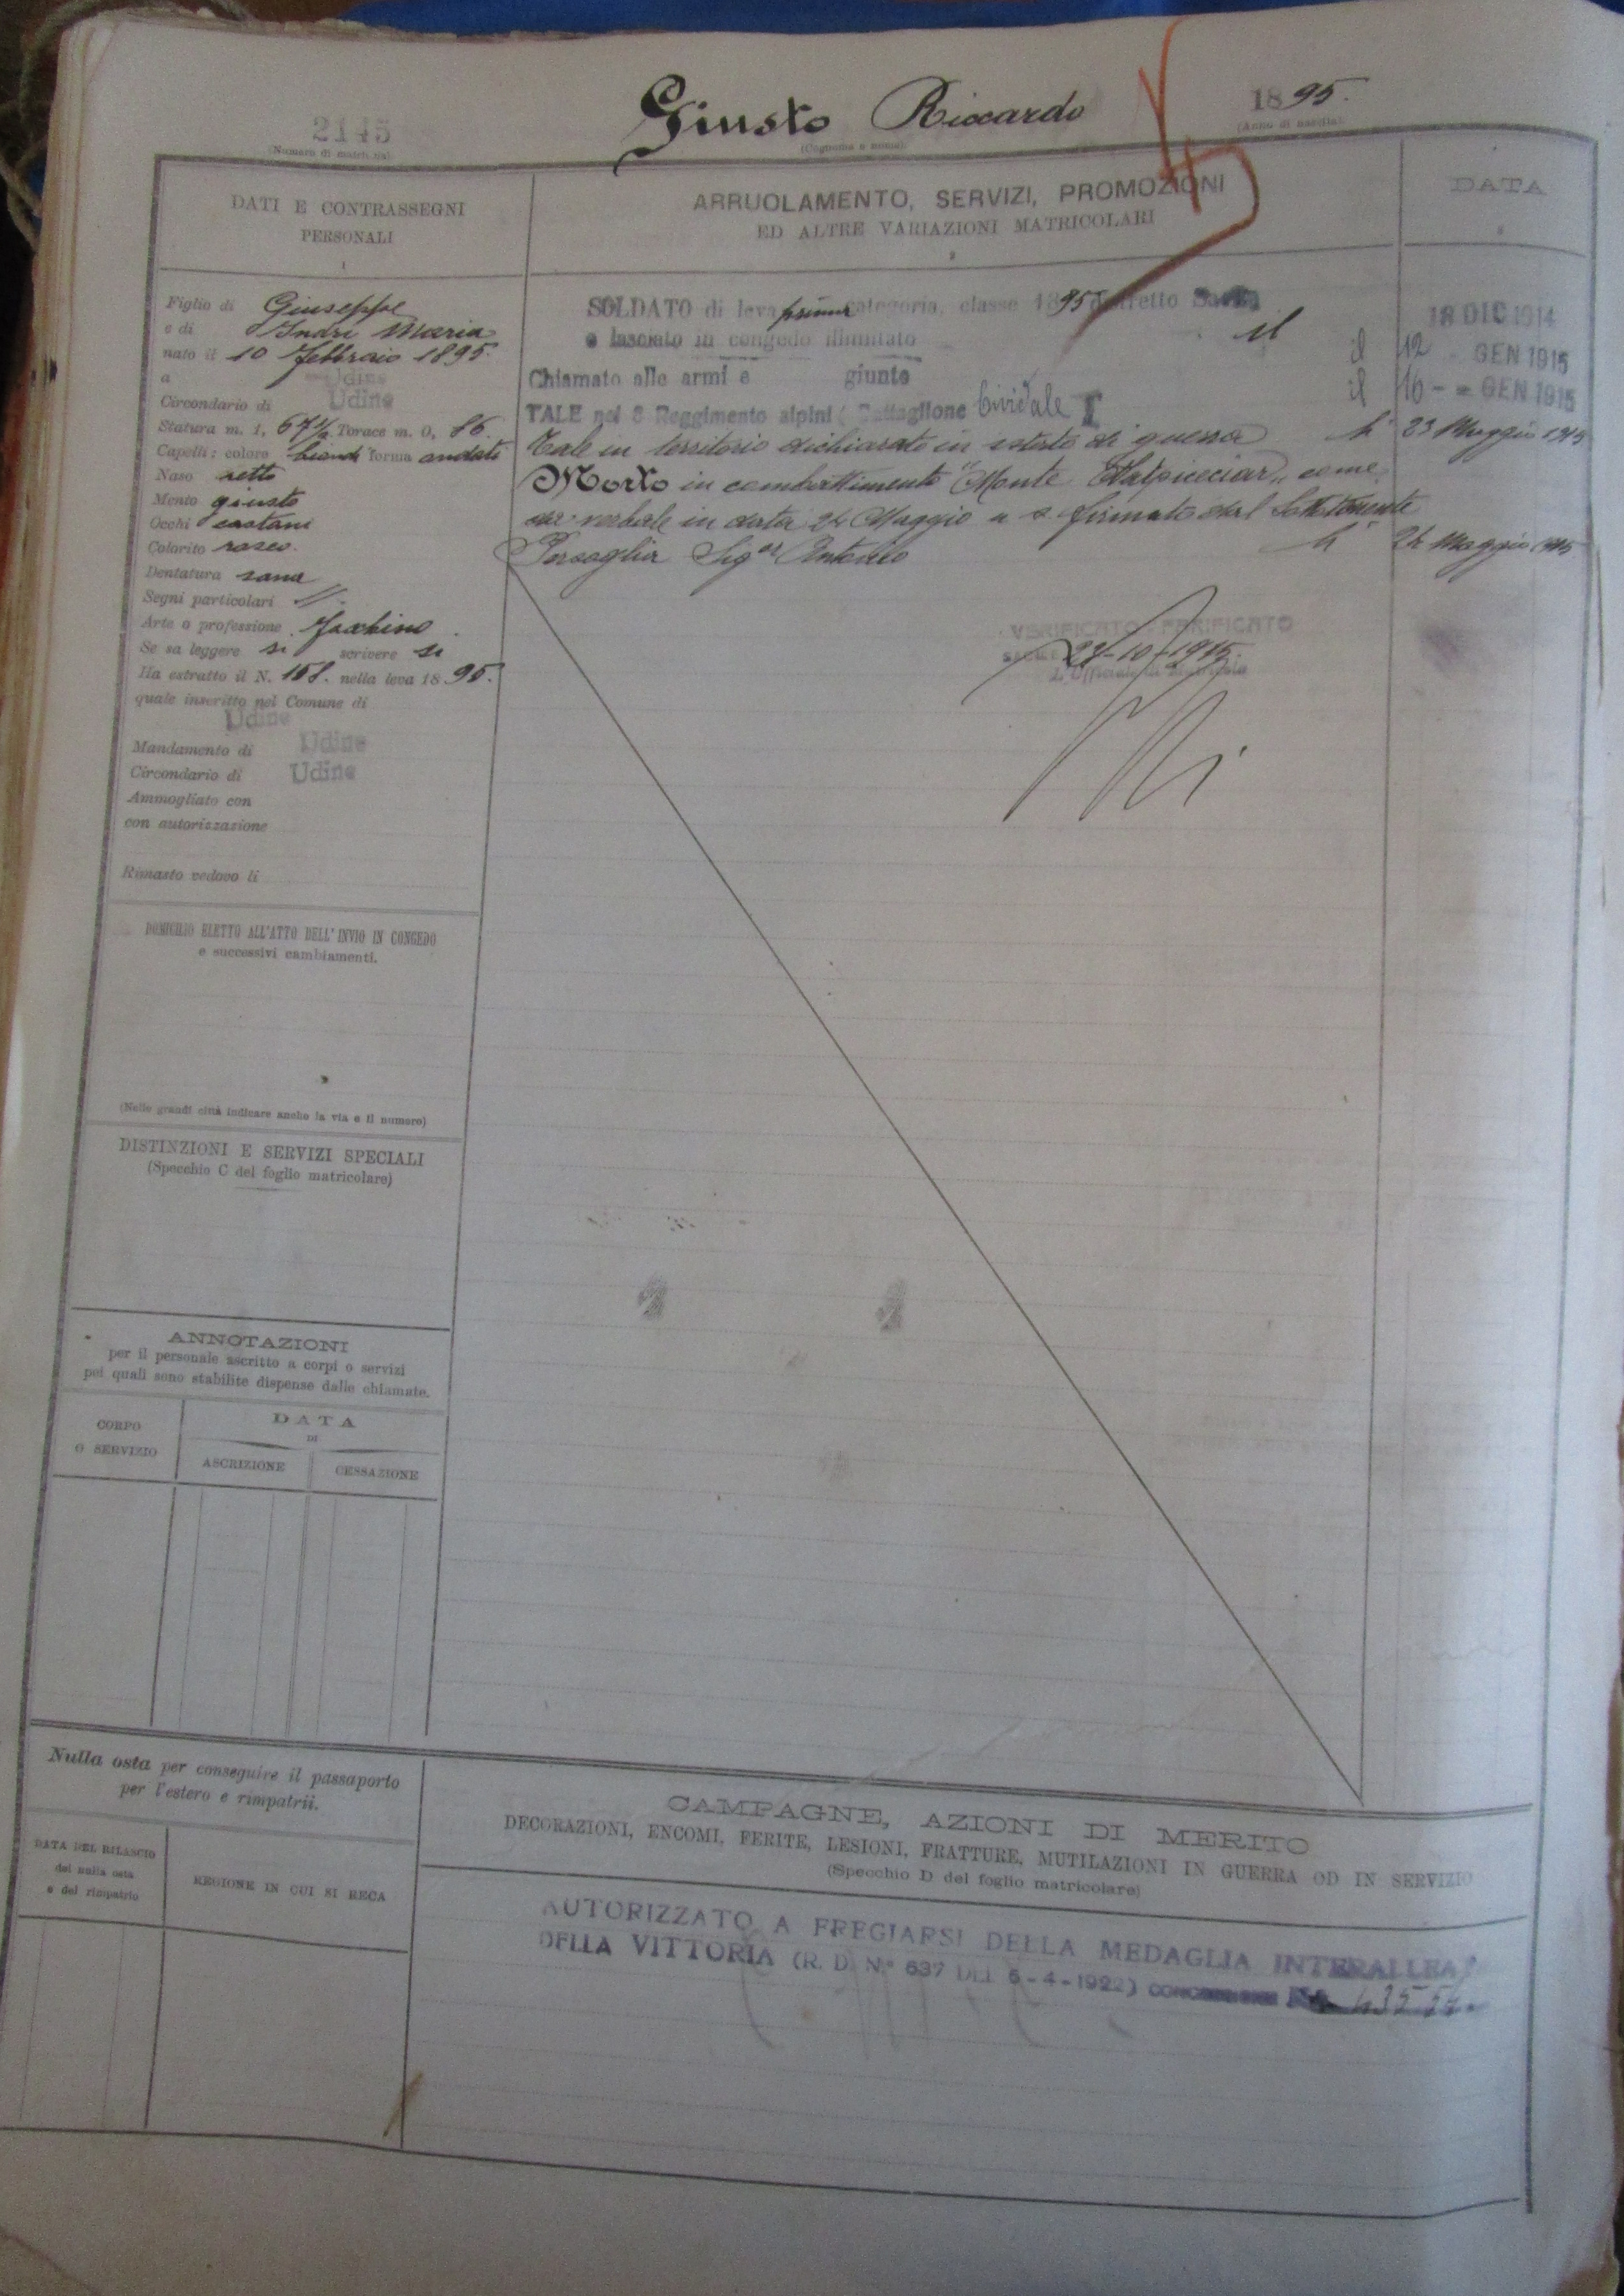 2145
(Numero di matricola)
Giusto Riccardo
(Cognome e nome)
1895.
(Anno di nascita)
DATI E CONTRASSEGNI
PERSONALI
1
Figlio di Giuseppe
e di Indri Maria
nato il 10 febbraio 1895.
a Udine
Circondario di Udine
Statura m. 1, 67½ Torace m. 0, 86
Capelli: colore biondi forma ondati
Naso retto
Mento giusto
Occhi castani
Colorito roseo.
Dentatura sana
Segni particolari //.
Arte o professione Facchino
Se sa leggere si scrivere si
Ha estratto il N. 158. nella leva 1895.
quale inscritto nel Comune di
Udine
Mandamento di Udine
Circondario di Udine
Ammogliato con
con autorizzazione
Rimasto vedovo li
DOMICILIO ELETTO ALL'ATTO DELL'INVIO IN CONGEDO
e successivi cambiamenti.
(Nelle grandi città indicare anche la via e il numero)
DISTINZIONI E SERVIZI SPECIALI
(Specchio C del foglio matricolare)
ANNOTAZIONI
per il personale ascritto a corpi o servizi
pei quali sono stabilite dispense dalle chiamate.
CORPO
O SERVIZIO
DATA
DI
ASCRIZIONE
CESSAZIONE
Nulla osta per conseguire il passaporto
per l'estero e rimpatrii.
DATA DEL RILASCIO
del nulla osta
e del rimpatrio
REGIONE IN CUI SI RECA
ARRUOLAMENTO, SERVIZI, PROMOZIONI
ED ALTRE VARIAZIONI MATRICOLARI
DATA
SOLDATO di leva prima categoria, classe 1895 distretto Sacile
e lasciato in congedo illimitato il 18 DIC 1914
Chiamato alle armi e giunto il 12 GEN 1915
TALE nel 8 Reggimento alpini (Battaglione Cividale il 16 - = GEN 1915
Tale in territorio dichiarato in istato di guerra li 23 Maggio 1915
Morto in combattimento "Monte Natpicciar" come
da verbale in data 24 Maggio a s. firmato dal Sottotenente
Persoglia Sigor Antonio li 24 Maggio 1915
VERIFICATO - PARIFICATO
27-10-1915.
L'Ufficiale di Matricola
CAMPAGNE, AZIONI DI MERITO
DECORAZIONI, ENCOMI, FERITE, LESIONI, FRATTURE, MUTILAZIONI IN GUERRA OD IN SERVIZIO
(Specchio D del foglio matricolare)
AUTORIZZATO A FREGIARSI DELLA MEDAGLIA INTERALLEATA
DELLA VITTORIA (R. D. N° 637 DEL 6-4-1922)